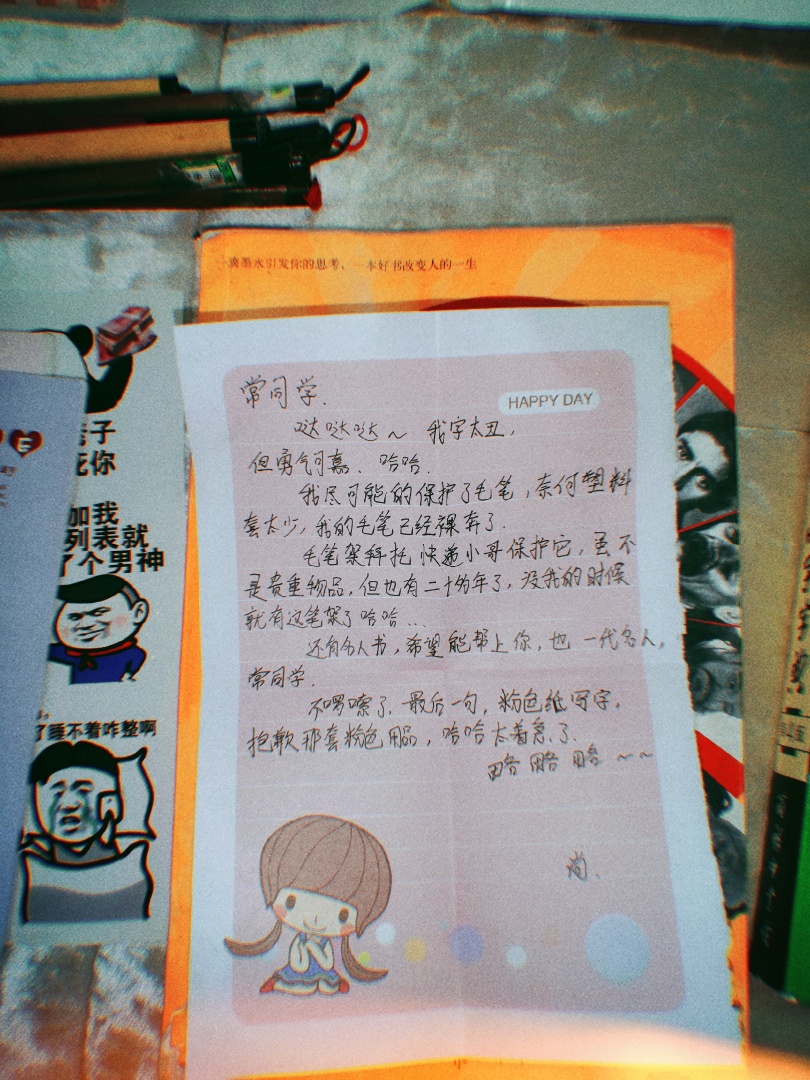 一滴墨水引发你的思考，一本好书改变人的一生
HAPPY DAY
常同学.
哒哒哒~ 我字太丑,
但勇气可嘉、哈哈.
我尽可能的保护了毛笔,奈何塑料
套太少,我的毛笔已经裸奔了.
毛笔架拜托快递小哥保护它,虽不
是贵重物品,但也有二十多年了,没我的时候
就有这笔架了哈哈...
还有名人书,希望能帮上你,也一代名人,
常同学.
不啰嗦了.最后一句,粉色纸写字,
抱歉那套粉色用品,哈哈太着急了.
略略略~~
尚.
E
子
死你
加我
列表就
了个男神
了睡不着咋整啊